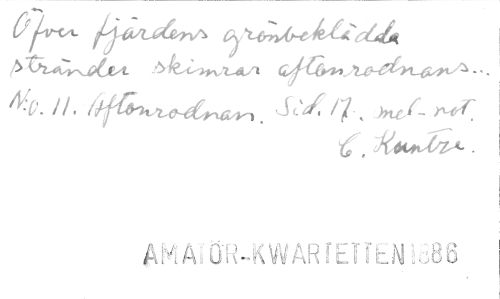 Öfver fjärdens grönbeklädda
stränder skimrar aftonrodnans...
N:o. 11. Aftonrodnan. Sid. 17. med not.
C. Kuntze.
AMATÖR-KWARTETTEN 1886